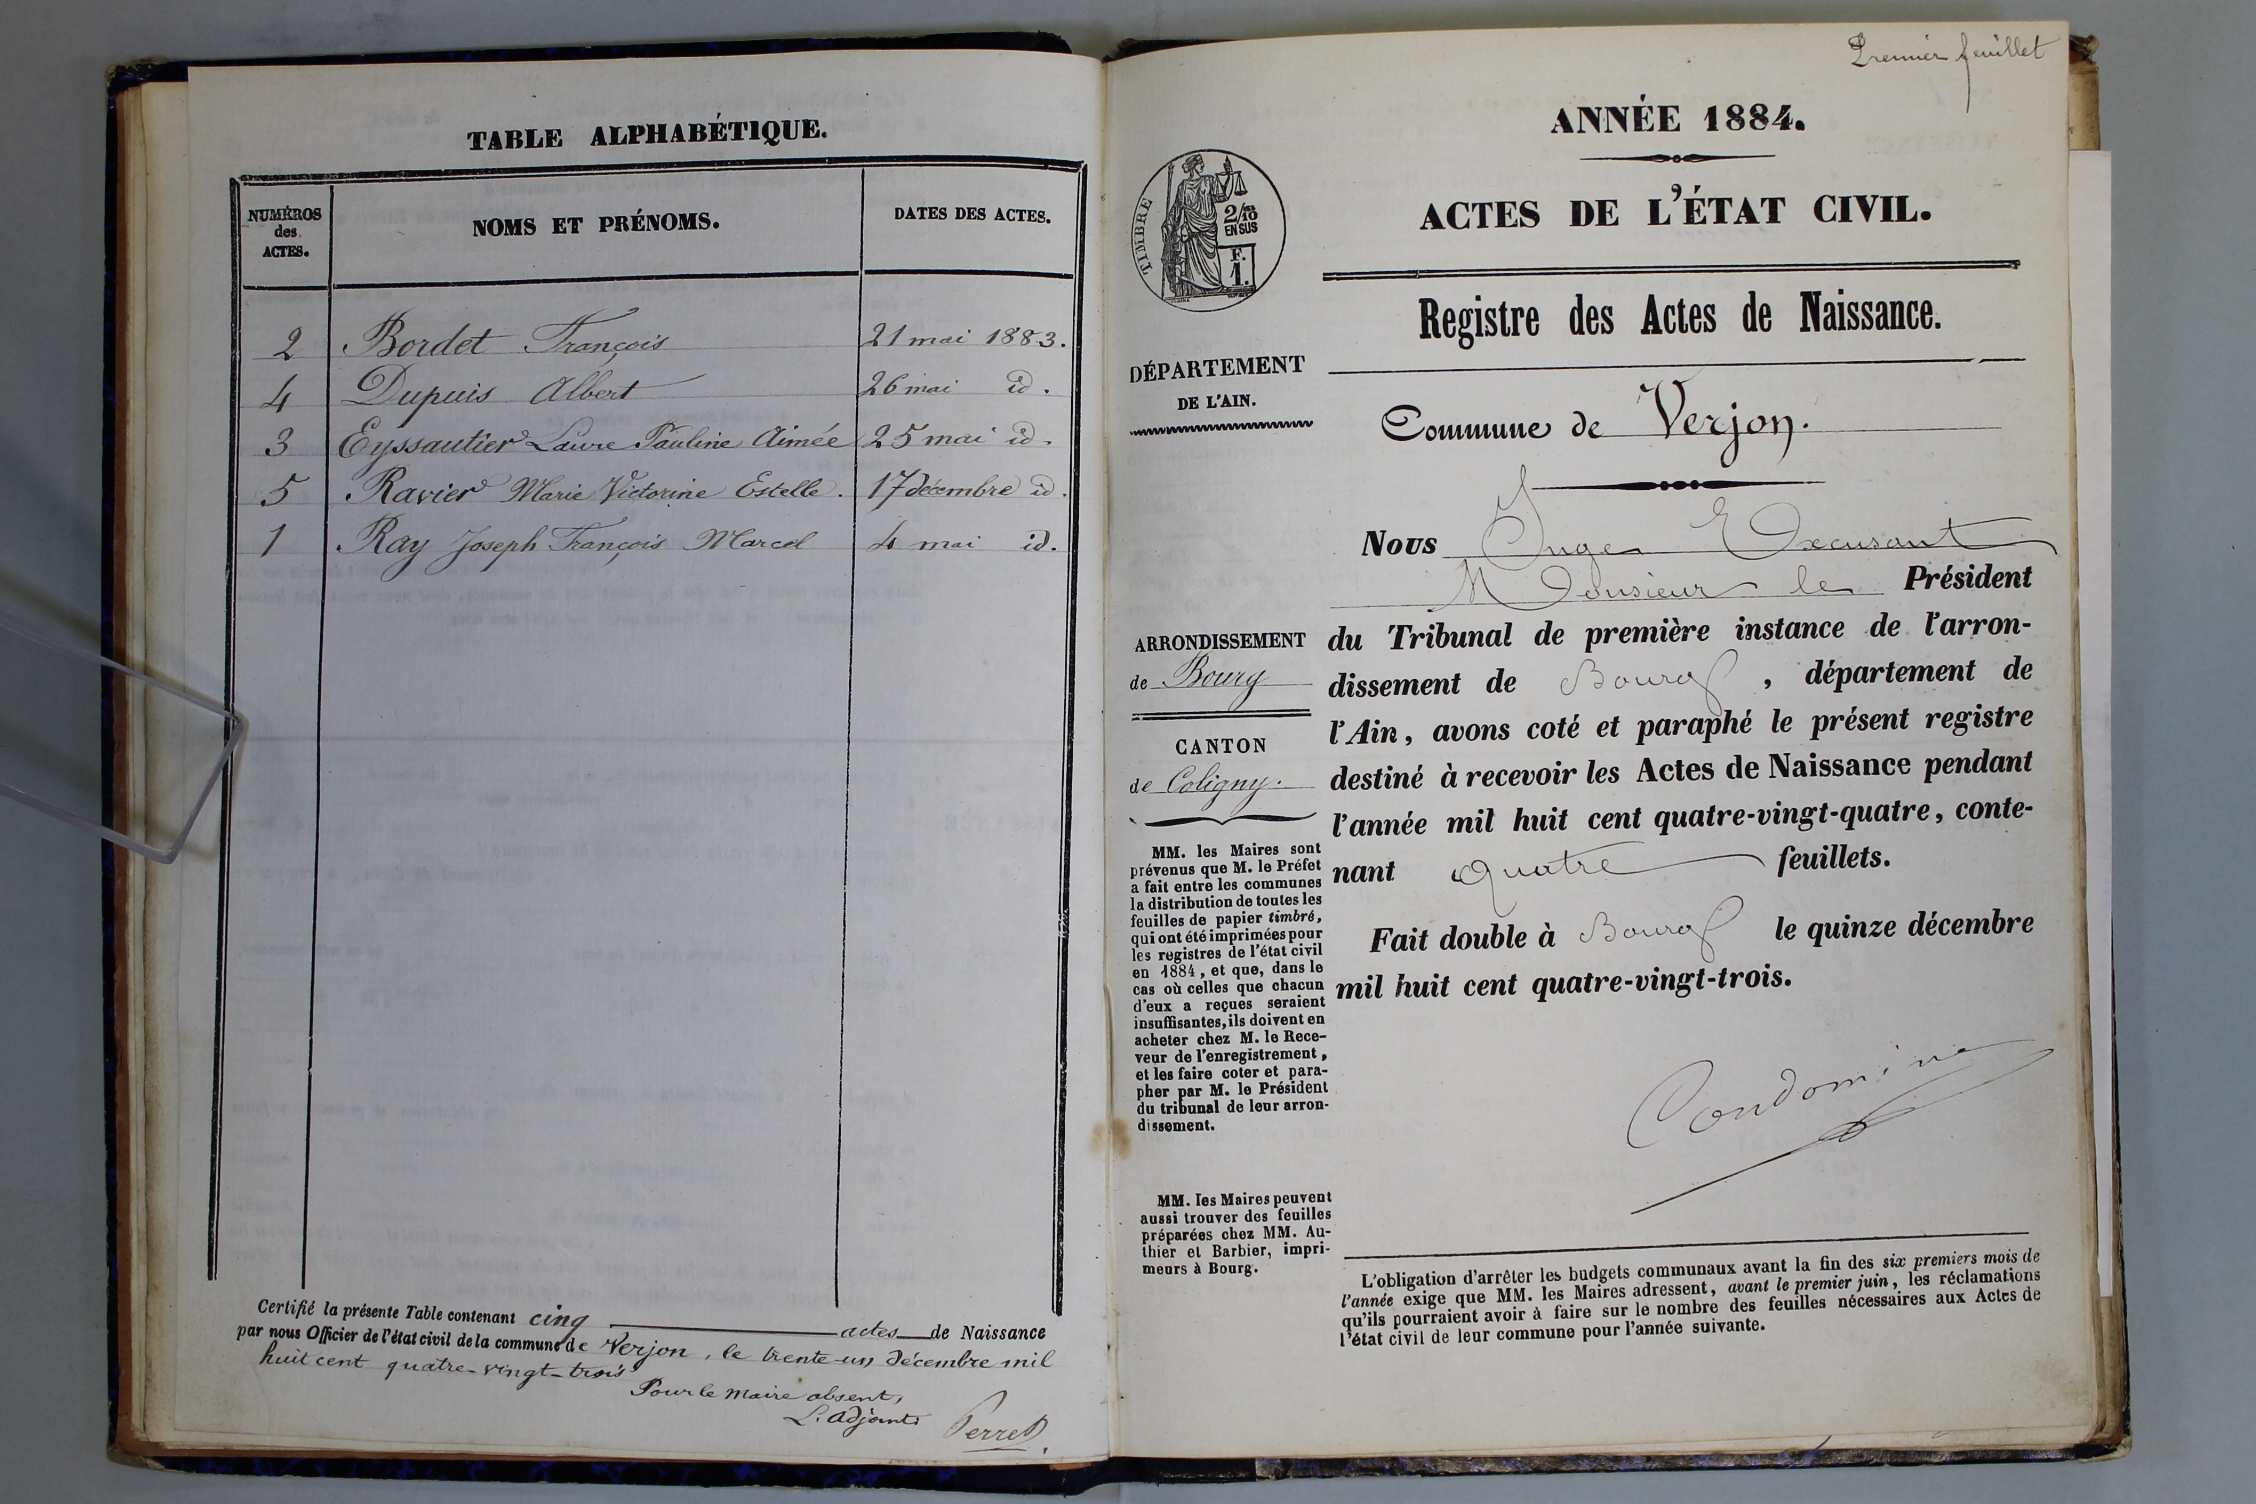 TABLE ALPHABÉTIQUE.
NUMÉROS des ACTES. NOMS ET PRÉNOMS. DATES DES ACTES.
2 Bordet François 21 mai 1883.
4 Dupuis Albert 26 mai id.
3 Eyssautier Laure Pauline Aimée 25 mai id.
5 Ravier Marie Victorine Estelle. 17 décembre id.
1 Ray Joseph François Marcel 4 mai id.
Certifié la présente Table contenant cinq actes de Naissance
par nous Officier de l'état civil de la commune de Verjon, le trente-un décembre mil
huit cent quatre-vingt-trois
Pour le Maire absent,
L'adjoint
Perret
Premier feuillet
ANNÉE 1884.
ACTES DE L'ÉTAT CIVIL.
TIMBRE
2/10
EN SUS
F.
1.
Registre des Actes de Naissance.
DÉPARTEMENT
DE L'AIN.
Commune de Verjon.
Nous Juge Excusant
Monsieur le Président
du Tribunal de première instance de l'arron-
dissement de Bourg, département de
l'Ain, avons coté et paraphé le présent registre
destiné à recevoir les Actes de Naissance pendant
l'année mil huit cent quatre-vingt-quatre, conte-
nant quatre feuillets.
Fait double à Bourg le quinze décembre
mil huit cent quatre-vingt-trois.
Condomine
ARRONDISSEMENT
de Bourg
CANTON
de Coligny.
MM. les Maires sont
prévenus que M. le Préfet
a fait entre les communes
la distribution de toutes les
feuilles de papier timbré,
qui ont été imprimées pour
les registres de l'état civil
en 1884, et que, dans le
cas où celles que chacun
d'eux a reçues seraient
insuffisantes, ils doivent en
acheter chez M. le Rece-
veur de l'enregistrement,
et les faire coter et para-
pher par M. le Président
du tribunal de leur arron-
dissement.
MM. les Maires peuvent
aussi trouver des feuilles
préparées chez MM. Au-
thier et Barbier, impri-
meurs à Bourg.
L'obligation d'arrêter les budgets communaux avant la fin des six premiers mois de
l'année exige que MM. les Maires adressent, avant le premier juin, les réclamations
qu'ils pourraient avoir à faire sur le nombre des feuilles nécessaires aux Actes de
l'état civil de leur commune pour l'année suivante.